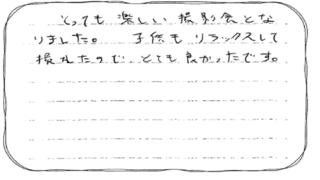 とっても楽しい撮影会とな
りました。 子供もリラックスして
撮れたので、とても良かったです。